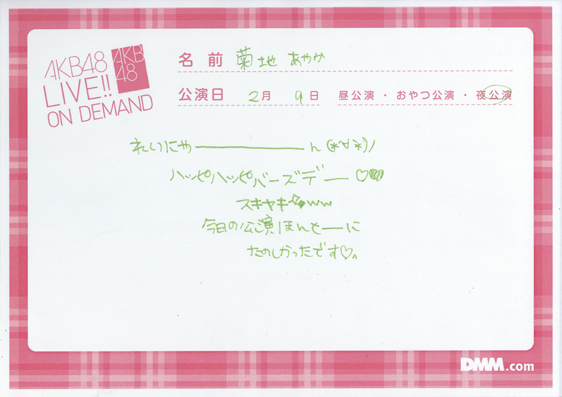 AKB48
LIVE!!
ON DEMAND
AKB
48
名前 菊地 あやか
公演日 2月 9日 昼公演・おやつ公演・夜公演
れいにゃーーーーーん(*´∀`*)ノ
ハッピハッピバーズデー♡♥
スキヤキ ww
今日の公演ほんとーに
たのしかったです♡。
DMM.com